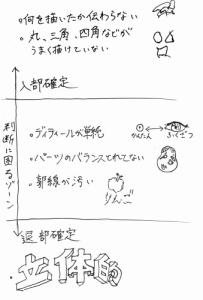 ・何を描いたか伝わらない
・丸、三角、四角などが
うまく描けていない
入部確定
判断に困るゾーン
・ディティールが単純
かんたん
ふくざつ
・パーツのバランスとれてない
・郭線が汚い
りんご
退部確定
・立体的